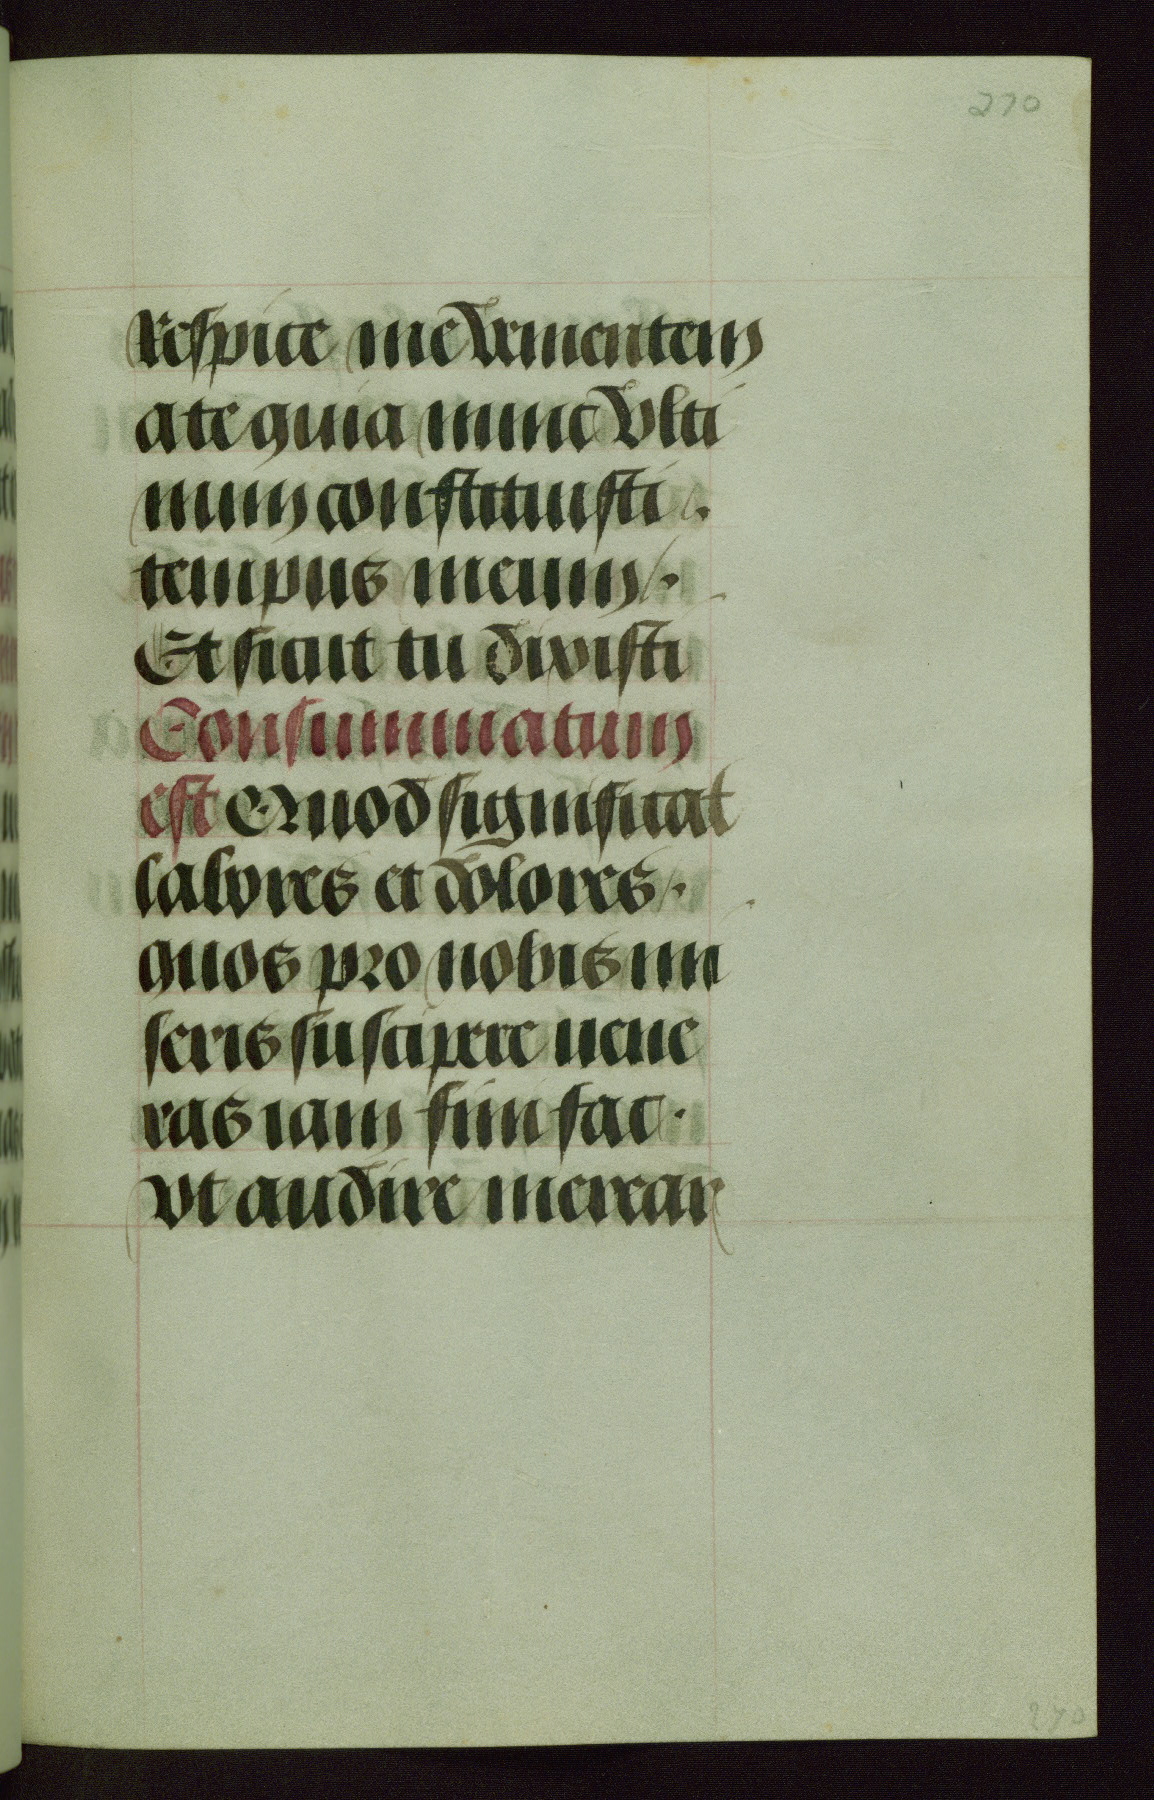 270
respice me venientem
a te quia nunc vlti
mum constituisti .
tempus meum .
Et sicut tu dixisti
Consummatum
est Quod significat
labores et dolores .
quos pro nobis mi
seris suscipere uene
ras iam fini fac .
vt audire merear
270